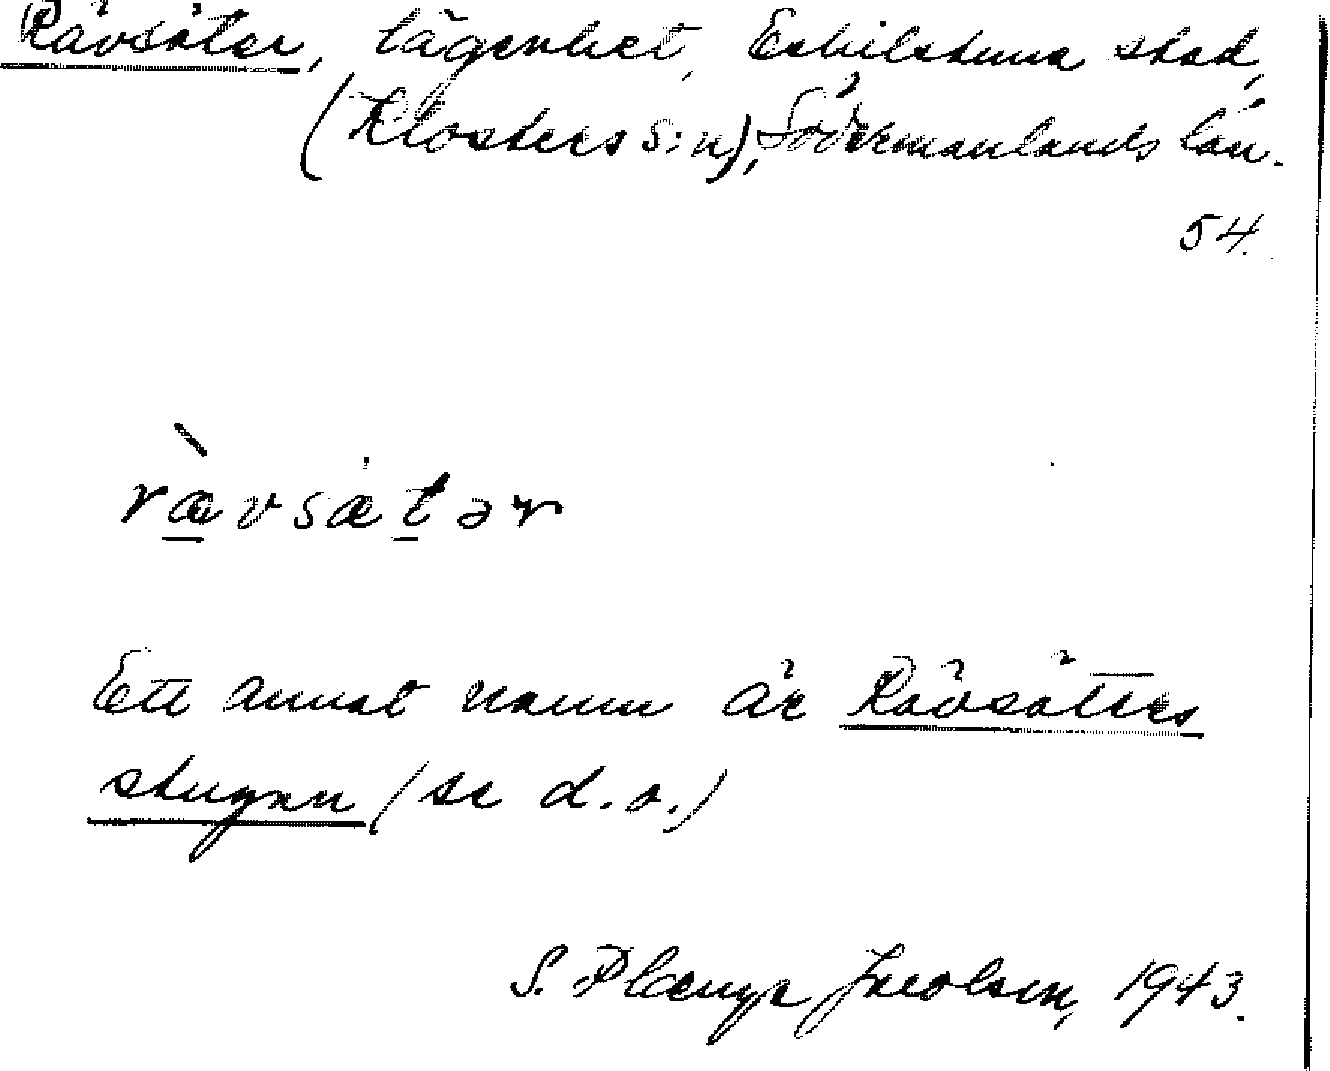 Rävsäter, lägenhet, Eskilstuna stad,
(Klosters s:n), Södermanlands län.
54.
rævsætər
Ett annat namn är Rävsäters
stugan (se d.o.)
S. Plænge Jacobsen, 1943.